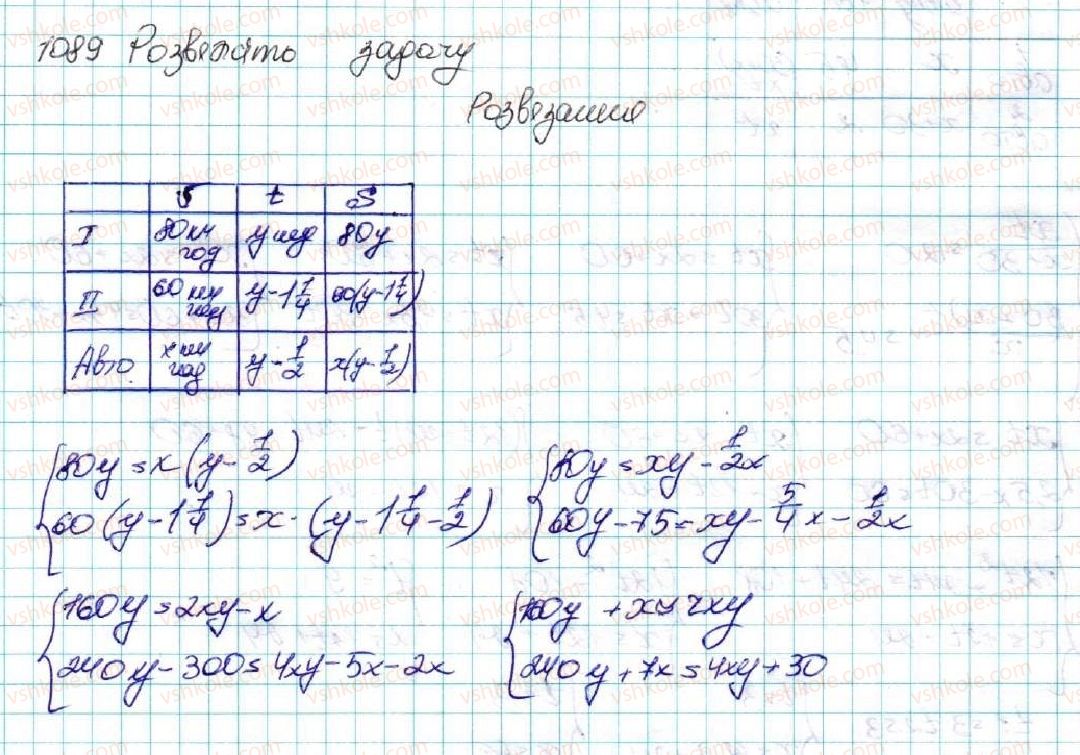 1089 Розвязати задачу
Розвязання
v t S
I 80 км год y год 80y
II 60 км год y-1 1/4 60(y-1 1/4)
Авто x км год y-1/2 x(y-1/2)
80y=x(y-1/2) 80y=xy-1/2x
60(y-1 1/4)=x·(y-1 1/4-1/2) 60y-75=xy-5/4x-1/2x
160y=2xy-x 160y+x=2xy
240y-300=4xy-5x-2x 240y+7x=4xy+30